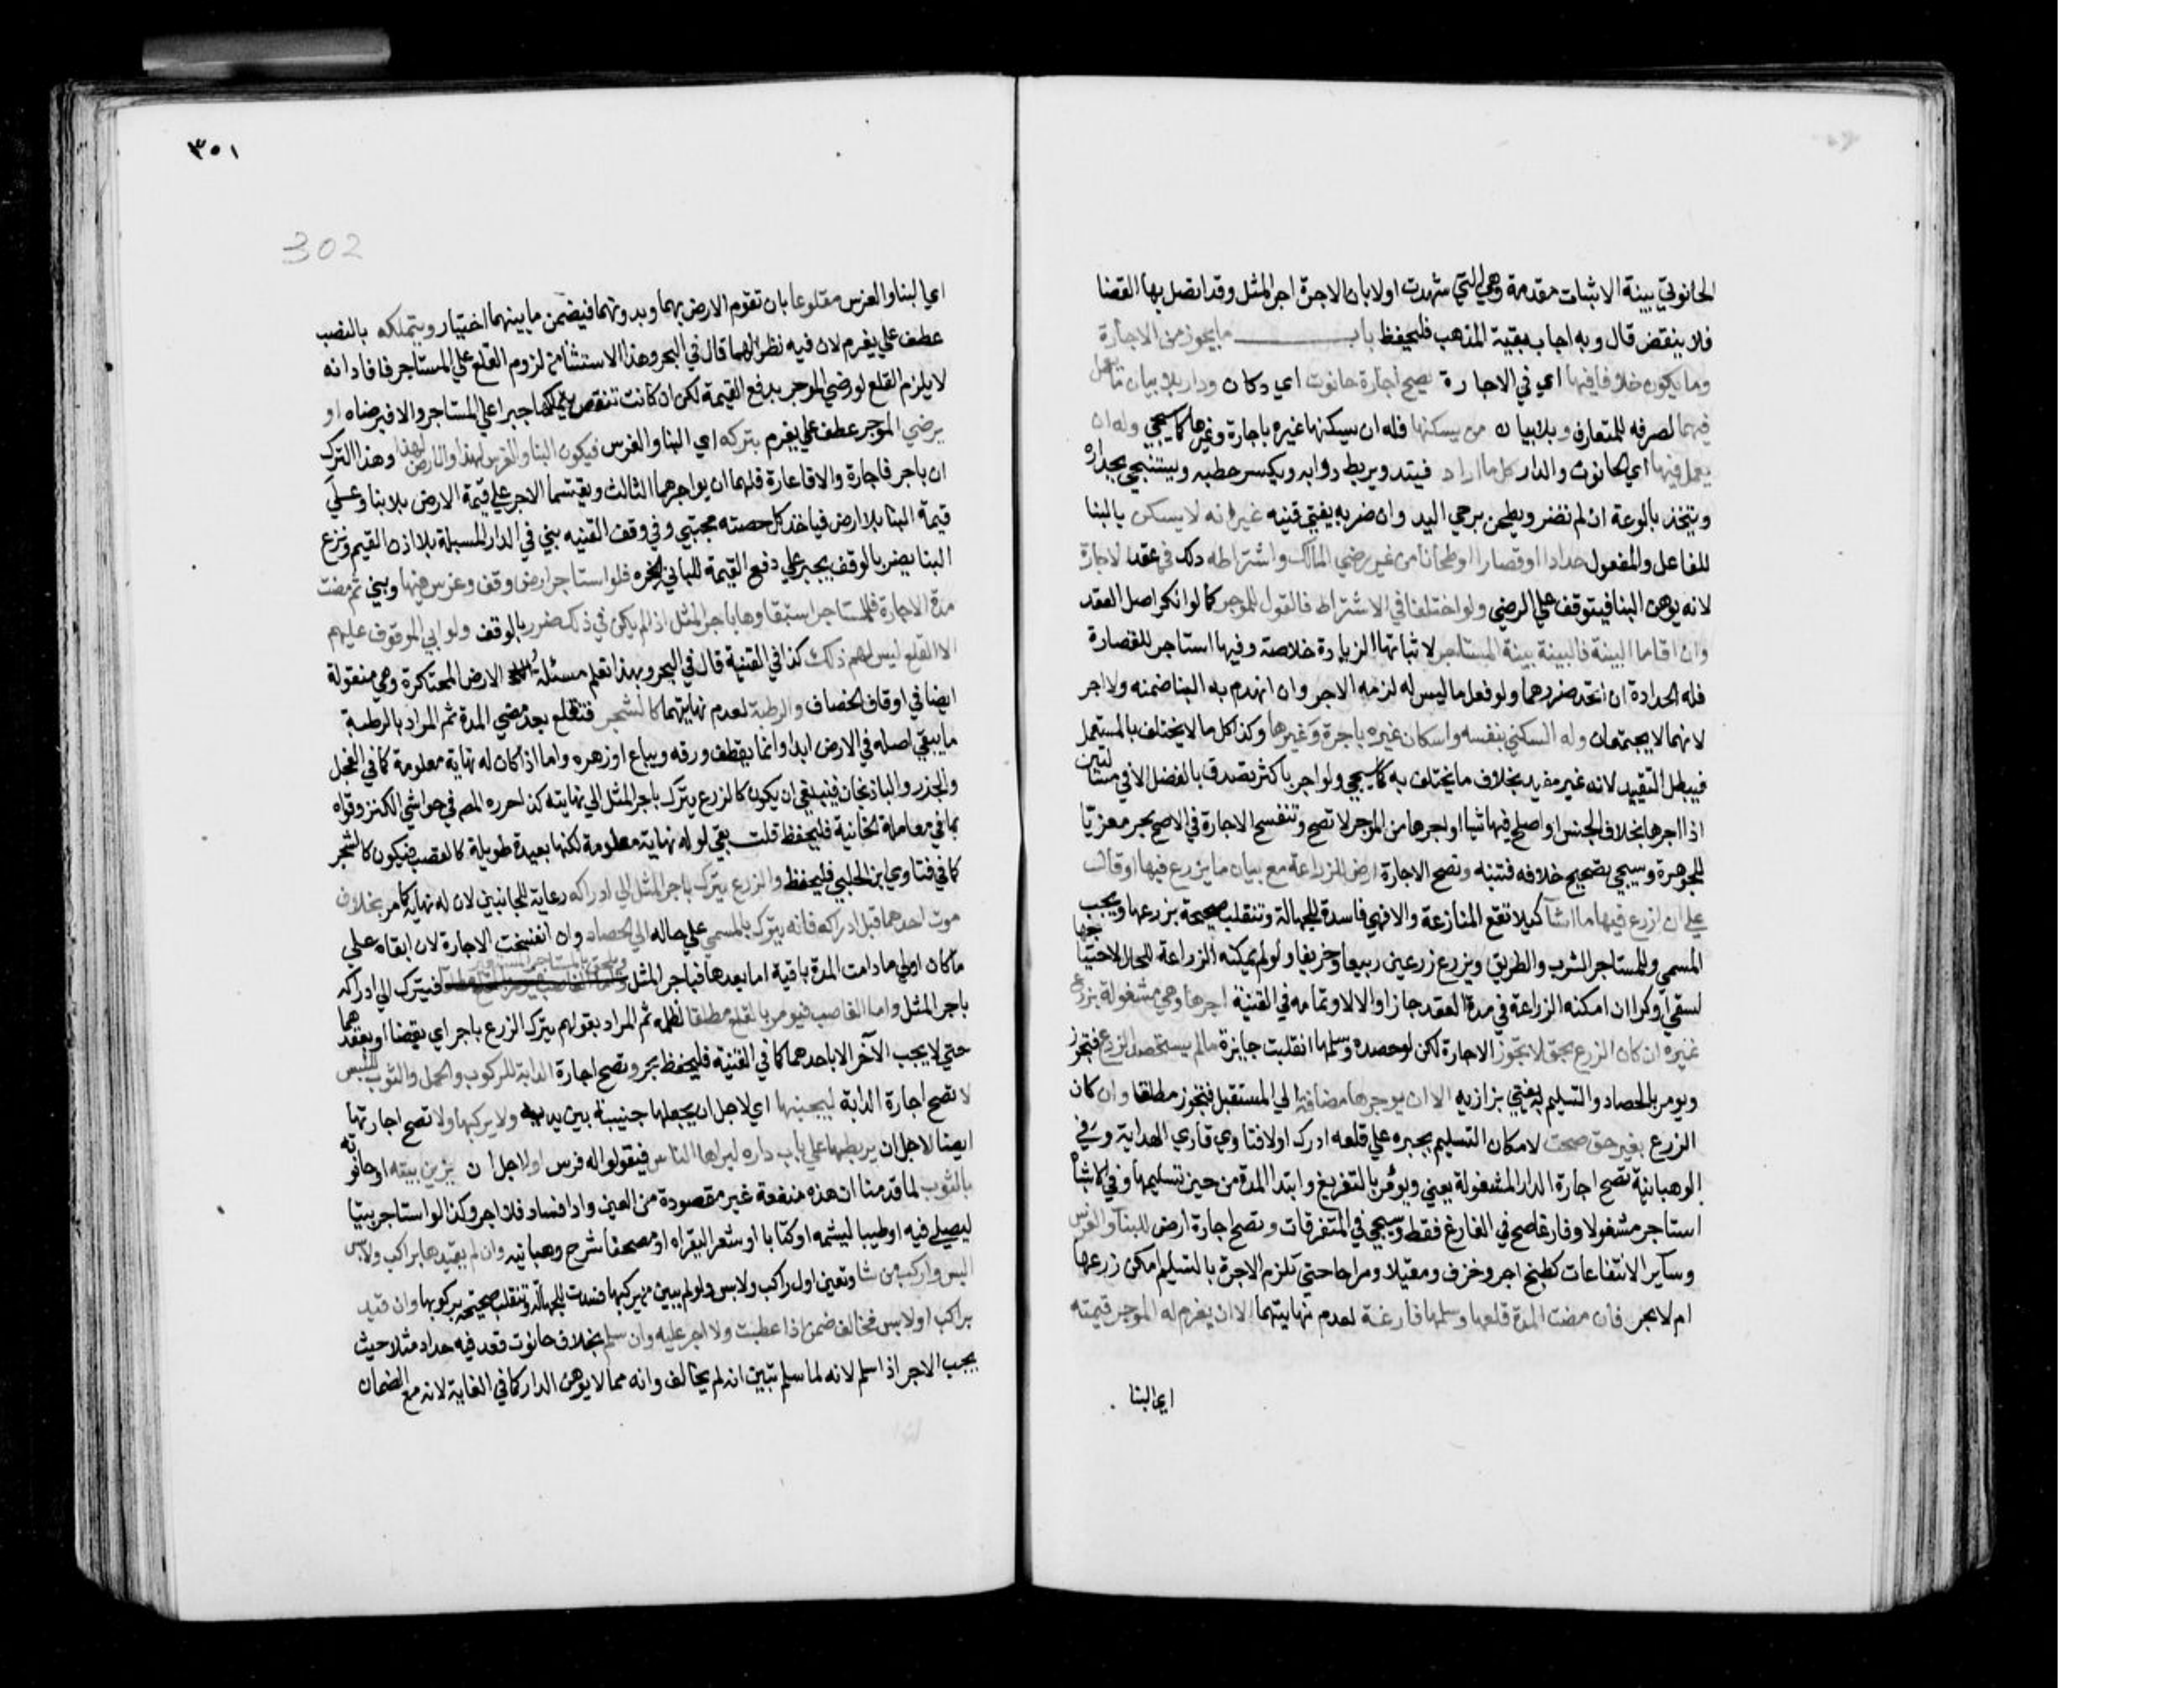 الحانوتي ببينة الاثبات مقدمة وهي التي شهدت اولا بان الاجرة اجر المثل وقد اتصل بها القضا
فلا ينقض قال وبه اجاب بقية المذهب فليحفظ باب ما يجوز من الاجارة
وما يكون خلافا فيها اي في الاجارة تصح اجارة حانوت اي دكان ودار بلا بيان ما يعمل
فيهما لصرفه للمتعارف وبلا بيان من يسكنها فله ان يسكنها غيره باجارة وغيرها كما سيجي وله ان
يعمل فيها اي الحانوت والدار كل ما اراد فيتد ويربط دوابه ويكسر حطبه ويستنجي بجداره
ويتخذ بالوعة ان لم تضر ويطحن برحي اليد وان ضر به يفتي قنيه غير انه لا يسكن بالبنا
للفاعل والمفعول حدادا او قصارا او طحانا من غير رضي المالك واشتراطه ذلك في عقد الاجارة
لانه يوهن البنا فيتوقف علي الرضي ولو اختلفا في الاشتراط فالقول للموجر كما لو انكر اصل العقد
وان اقاما البينة فالبينة بينة المستاجر لاثباتها الزيادة خلاصة وفيها استاجر للقصارة
فله الحدادة ان اتحد ضررهما ولو فعل ما ليس له لزمه الاجر وان انهدم به البنا ضمنه ولا اجر
لانهما لا يجتمعان وله السكني بنفسه واسكان غيره باجرة وغيرها وكذا كل ما لا يختلف بالمستعمل
فيبطل التقييد لانه غير مفيد بخلاف ما يختلف به كما سيجي ولو اجر باكثر تصدق بالفضل الا في مسئلتين
اذا اجرها بخلاف الجنس او اصلح فيها شيا او اجرها من الموجر لا تصح وتنفسخ الاجارة في الاصح بحر معزيا
للجوهرة وسيجي تصحيح خلافه فتنبه وتصح الاجارة ارض للزراعة مع بيان ما يزرع فيها او قال
علي ان ازرع فيها ما اشا كيلا تقع المنازعة والا فهي فاسدة للجهالة وتنقلب صحيحة بزرعها ويجب
المسمي وللمستاجر الشرب والطريق ويزرع زرعين ربيعا وخريفا ولو لم يمكنه الزراعة للحال لاحتياجها
لسقي او كرا ان امكنه الزراعة في مدة العقد جاز اوالا لا وتمامه في القنية اجرها وهي مشغولة بزرع
غيره ان كان الزرع بحق لا تجوز الاجارة لكن لو حصده وسلمها انقلبت جايزة مالم يستحصد الزرع فتجوز
ويومر بالحصاد والتسليم به يفتي بزازيه الا ان يوجرها مضافة الي المستقبل فتجوز مطلقا وان كان
الزرع بغير حق صحت لامكان التسليم بجبره علي قلعه ادرك اولا فتاوي قاري الهداية وفي
الوهبانية تصح اجارة الدار المشغولة يعني ويومر بالتفريغ وابتدا المدة من حين تسليمها وفي الاشباه
استاجر مشغولا وفارغا صح في الفارغ فقط وسيجي في المتفرقات وتصح اجارة ارض للبنا والغرس
وساير الانتفاعات كطبخ اجر وخزف ومقيلا ومراحا حتي تلزم الاجرة بالتسليم امكن زرعها
ام لا بحر فان مضت المدة قلعها وسلمها فارغة لعدم نهايتهما الا ان يغرم له الموجر قيمته
اي البنا
٣٠١
302
اي البنا والغرس مقلوعا بان تقوم الارض بهما وبدونهما فيضمن ما بينهما اختيار ويتملكه بالنصب
عطف علي يغرم لان فيه نظرا لهما قال في البحر وهذا الاستثنا من لزوم القلع علي المستاجر فافاد انه
لا يلزم القلع لو رضي الموجر بدفع القيمة لكن ان كانت تنقص يتملكها جبرا علي المستاجر والا فبرضاه او
يرضي الموجر عطف علي يغرم بتركه اي البنا والغرس فيكون البنا والغرس لهذا والارض لهذا وهذا الترك
ان باجر فاجارة والا فاعارة فلهما ان يواجرهما الثالث ويقتسما الاجر علي قيمة الارض بلا بنا وعلي
قيمة البنا بلا ارض فياخذ كل حصته مجتبي وفي وقف القنيه بني في الدار المسبلة بلا اذن القيم ونزع
البنا يضر بالوقف يجبر علي دفع القيمة للباني الخ فلو استاجر ارض وقف وغرس فيها وبني ثم مضت
مدة الاجارة فللمستاجر استبقاوها باجر المثل اذا لم يكن في ذلك ضرر بالوقف ولو ابي الموقوف عليهم
الا القلع ليس لهم ذلك كذا في القنية قال في البحر وبهذا تعلم مسئلة الارض المحتكرة وهي منقولة
ايضا في اوقاف الخصاف والرطبة لعدم نهايتهما كالشجر فتقلع بعد مضي المدة ثم المراد بالرطبة
ما يبقي اصله في الارض ابدا وانما يقطف ورقه ويباع او زهره واما اذا كان له نهاية معلومة كما في الفجل
والجذر والباذنجان فينبغي ان يكون كالزرع يترك باجر المثل الي نهايته كذا حرره المص في حواشي الكنز وقواه
بما في معاملة الخانية فليحفظ قلت بقي لو له نهاية معلومة لكنها بعيدة طويلة كالقصب فيكون كالشجر
كما في فتاوي ابن الحلبي فليحفظ والزرع يترك باجر المثل الي ادراكه رعاية للجانبين لان له نهاية كما مر بخلاف
موت احدهما قبل ادراكه فانه يترك بالمسمي علي حاله الي الحصاد وان انفسخت الاجارة لان ابقاه علي
ما كان اولي ما دامت المدة باقية اما بعدها فباجر المثل ويلحق بالمستاجر المستعير فيترك الي ادراكه
باجر المثل واما الغاصب فيومر بالقلع مطلقا لظلمه ثم المراد بقولهم يترك الزرع باجر اي بقضا او بعقدهما
حتي لا يجب الاجر الا باحدهما كما في القنية فليحفظ بحر وتصح اجارة الدابة للركوب والحمل والثوب للبس
لا تصح اجارة الدابة ليجنبها اي لاجل ان يجعلها جنيبة بين يديه ولا يركبها ولا تصح اجارتها
ايضا لاجل ان يربطها علي باب داره ليراها الناس فيقولوا له فرس او لاجل ان يزين بيته او حانوته
بالثوب لما قدمنا ان هذه منفعة غير مقصودة من العين واذا فساد فلا اجر وكذا لو استاجر بيتا
ليصلي فيه او طيبا ليشمه او كتابا او شعرا ليقراه او مصحفا شرح وهبانيه وان لم يقيدها براكب ولابس
البس واركب من شا وتعين اول راكب ولابس ولو لم يبين من يركبها فسدت للجهالة وتنقلب صحيحة بركوبها وان قيد
براكب او لابس فخالف ضمن اذا عطبت ولا اجر عليه وان سلم بخلاف حانوت قعد فيه حداد مثلا حيث
يجب الاجر اذا سلم لانه لما سلم تبين انه لم يخالف وانه مما لا يوهن الدار كما في الغاية لانه مع الضمان